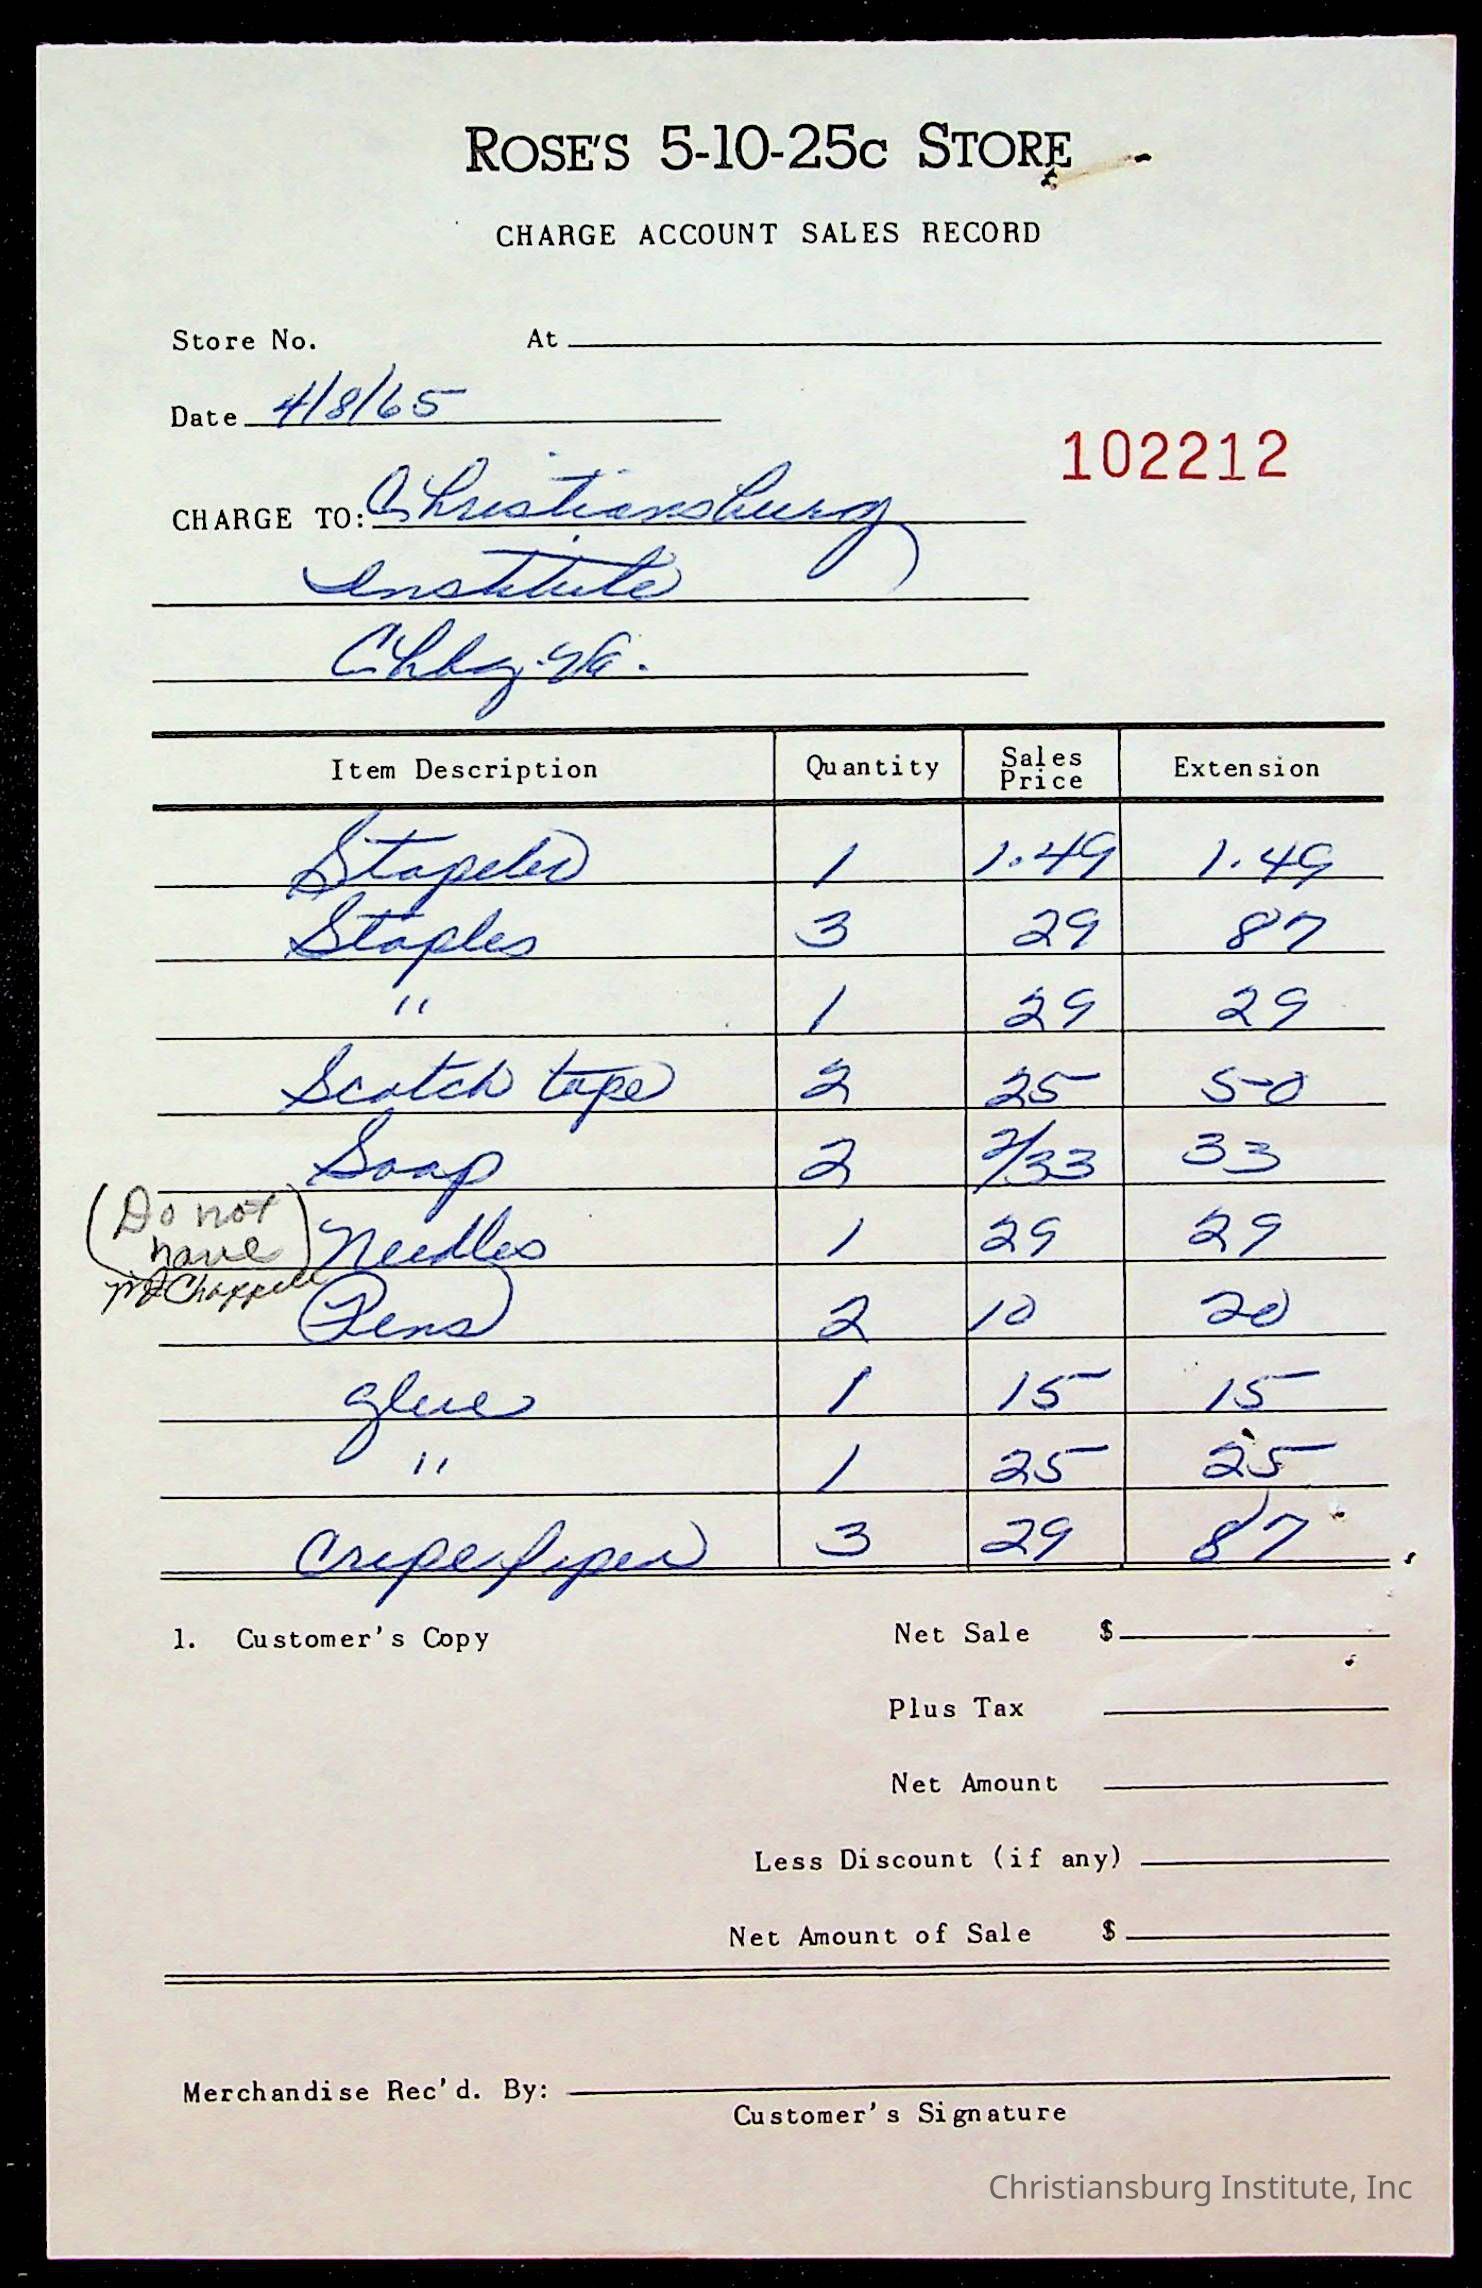 ROSE'S 5-10-25c STORE
CHARGE ACCOUNT SALES RECORD
Store No. At
Date 4/8/65
102212
CHARGE TO: Christiansburg
Institute
Chbg. Va.
Item Description Quantity Sales Price Extension
Stapler 1 1.49 1.49
Staples 3 29 87
" 1 29 29
Scotch tape 2 25 50
Soap 2 2/33 33
(Do not have) Needles 1 29 29
Chappell
Pens 2 10 20
glue 1 15 15
" 1 25 25
Crepe paper 3 29 87
1. Customer's Copy Net Sale $
Plus Tax
Net Amount
Less Discount (if any)
Net Amount of Sale $
Merchandise Rec'd. By:
Customer's Signature
Christiansburg Institute, Inc